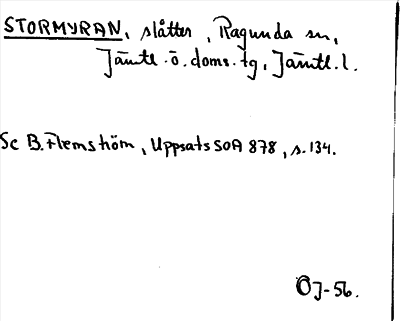 STORMYRAN, slåtter, Ragunda sn,
Jämtl. ö. doms. tg, Jämtl. l.
Se B. Flemström, Uppsats SOA 878, s. 134.
ÖJ-56.